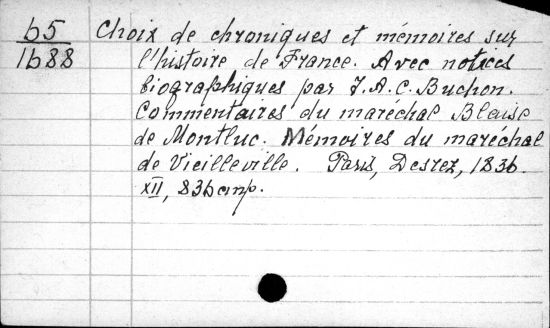 65 Choix de chroniques et mémoires sur
1688 l'histoire de France. Avec notices
biographiques par J.A.C. Buchon.
Commentaires du maréchal Blaise
de Montluc. Mémoires du maréchal
de Vieilleville. Paris, Desrez, 1836.
XII, 836 стр.